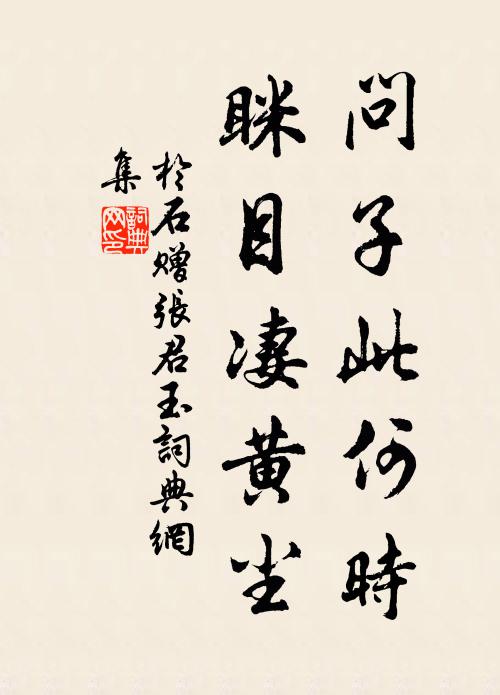 問子此何時
眯目凄黄尘
於石赠張君玉詞典網
集
詞典
网印